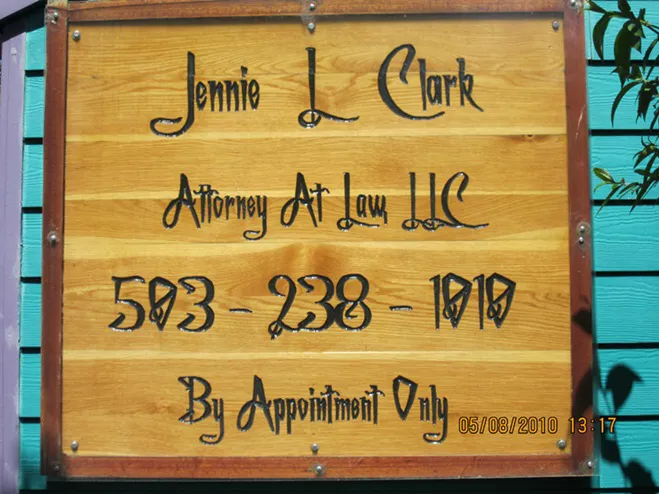 Jennie L Clark
Attorney At Law, LLC
503-238-1010
By Appointment Only
05/08/2010 13:17